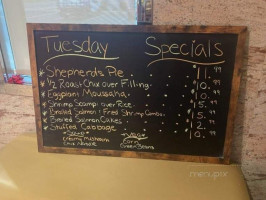 Tuesday Specials
Shepherds Pie 11.99
1/2 Roast Chix over Filling 10.99
Eggplant Moussaka 10.99
Shrimp Scampi over Rice 15.99
Broiled Salmon & Fried Shrimp Combo
Salmon Cakes
Stuffed Cabbage 10.99
Soup
Creamy Mushroom
Chix Noodle
Vegge
Corn
Green Beans